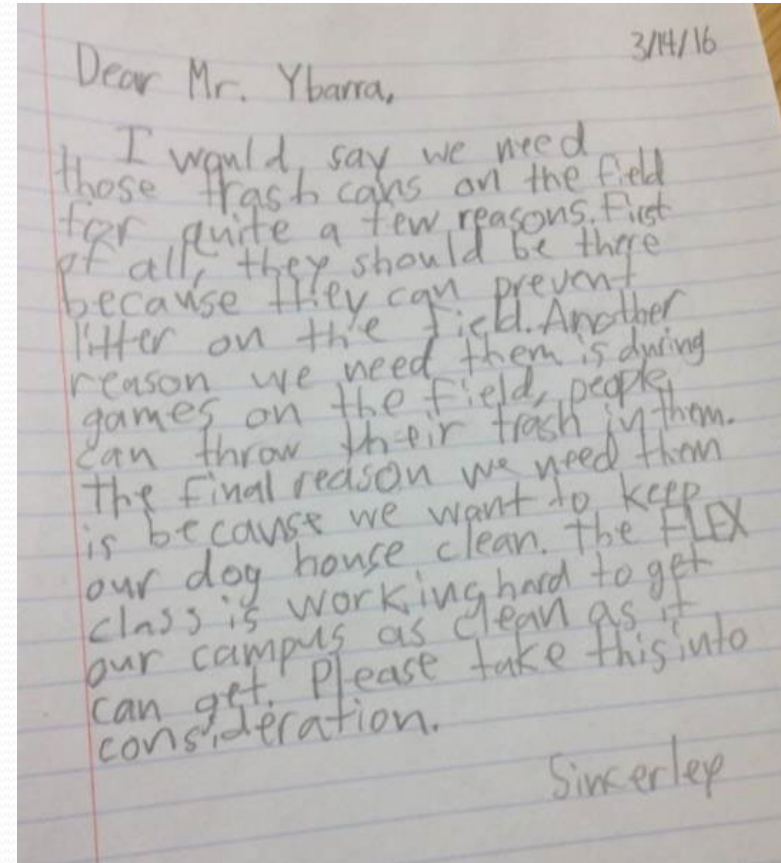 3/14/16
Dear Mr. Ybarra,
I would say we need
those trash cans on the field
for quite a few reasons. First
of all, they should be there
because they can prevent
litter on the field. Another
reason we need them is during
games on the field, people
can throw their trash in them.
The final reason we need them
is because we want to keep
our dog house clean. The FLEX
class is working hard to get
our campus as clean as it
can get. Please take this into
consideration.
Sincerley